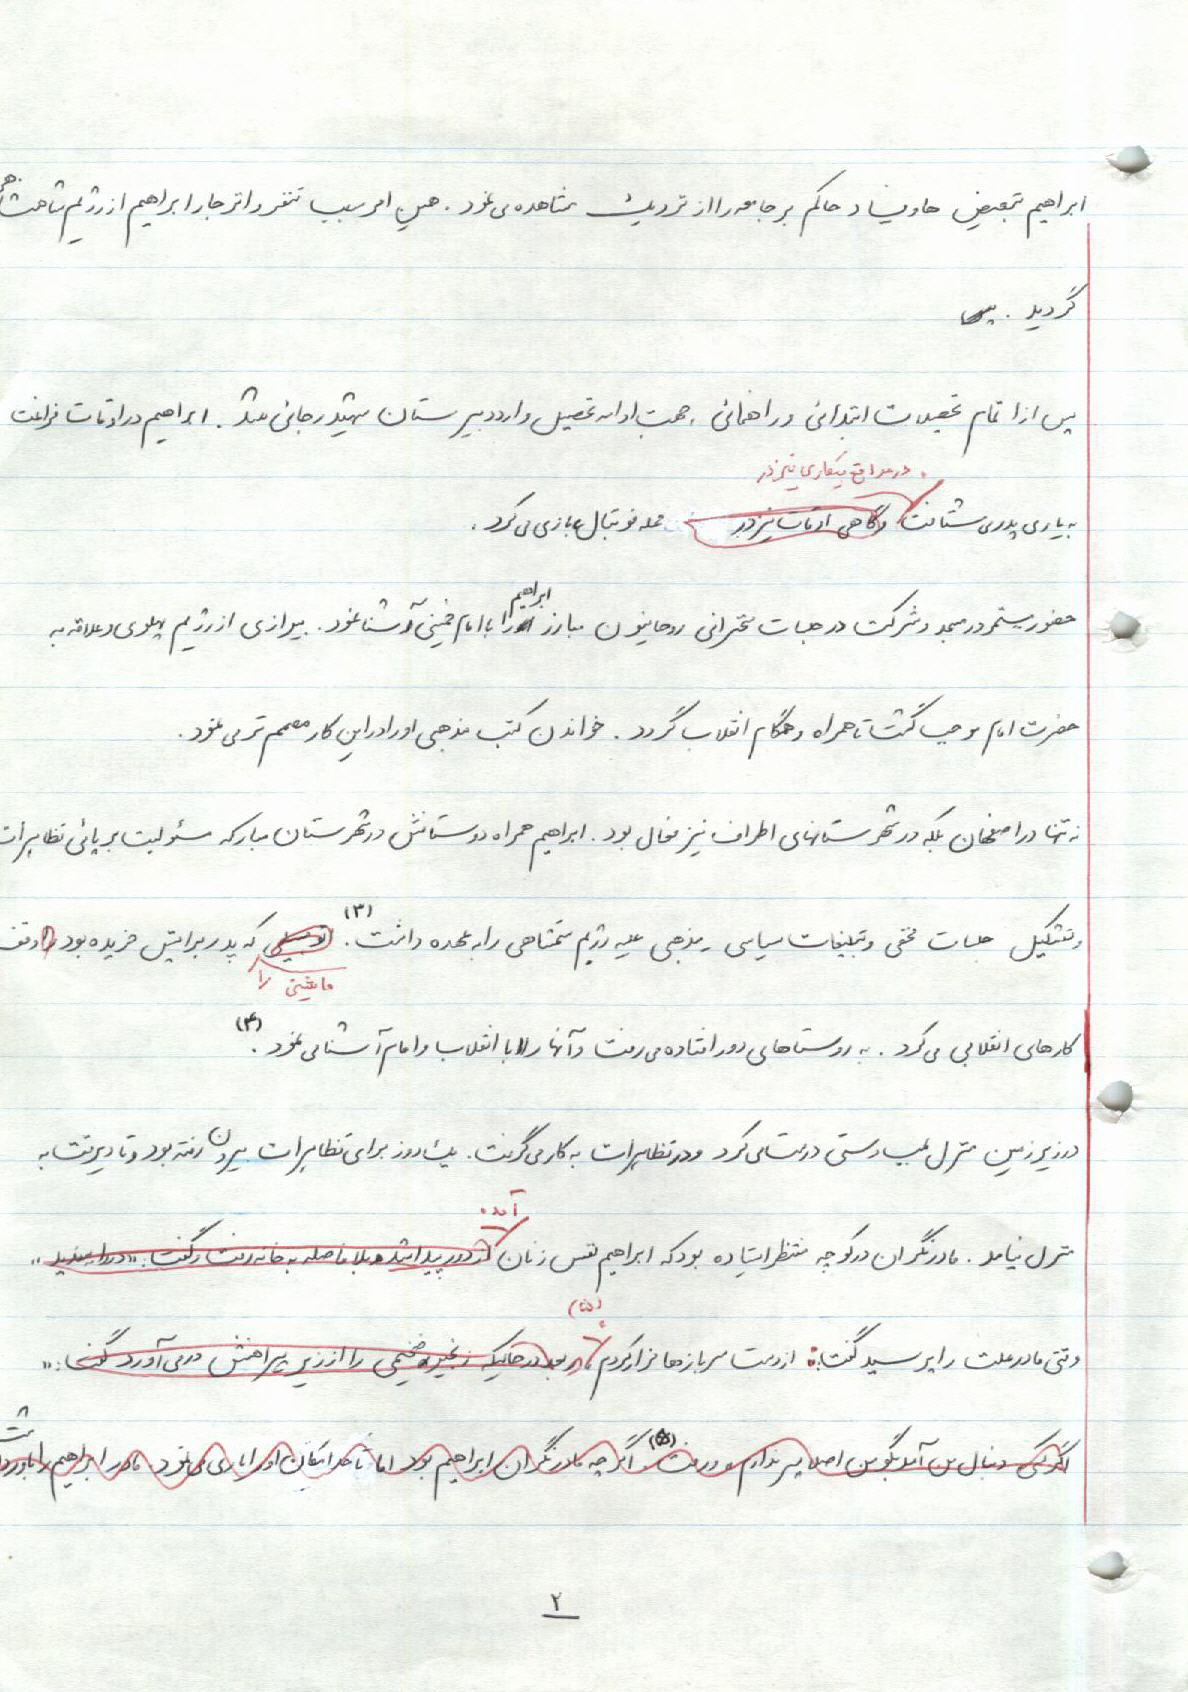 ابراهیم تبعیض ها و فساد حاکم بر جامعه را از نزدیک مشاهده می نمود. همین امر سبب تنفر و انزجار ابراهیم از رژیم شاهنشاهی
گردید.
پس از اتمام تحصیلات ابتدائی و راهنمائی، جهت ادامه تحصیل وارد دبیرستان شهید رجائی شد. ابراهیم در اوقات فراغت
در مواقع بیکاری نیز در
به یاری پدر می شتافت و گاهی اوقات نیز در محله فوتبال بازی می کرد.
ابراهیم
حضور مستمر در مسجد و شرکت در جلسات سخنرانی روحانیون مبارز را با امام خمینی آشنا نمود. بیزاری از رژیم پهلوی و علاقه به
حضرت امام موجب گشت تا همراه و همگام انقلاب گردد. خواندن کتب مذهبی او را در این کار مصمم تر می نمود.
نه تنها در اصفهان بلکه در شهرستانهای اطراف نیز فعال بود. ابراهیم همراه دوستانش در شهرستان مبارکه مسئولیت برپائی تظاهرات
و تشکیل جلسات مخفی و تبلیغات سیاسی - مذهبی علیه رژیم ستمشاهی را به عهده داشت. (۳) که پدر برایش خریده بود را وقف
ماشینی را
کارهای انقلابی می کرد. به روستاهای دور افتاده می رفت و آنها را با انقلاب و امام آشنا می نمود. (۴)
در زیرزمین منزل بمب دستی درست می کرد و در تظاهرات به کار می گرفت. یک روز برای تظاهرات بیرون رفته بود و تا دیروقت به
آمد.
منزل نیامد. مادر نگران در کوچه منتظر ایستاده بود که ابراهیم نفس زنان از دور پیدا شد و بلافاصله به خانه رفت و گفت: «در را ببندید»
(۵)
وقتی مادر علت را پرسید گفت: از دست سربازها فرار کردم. بعد در حالیکه زنجیر ضخیمی را از زیر پیراهنش در می آورد گفت: «
اگر کسی دنبال من آمد بگو من اصلا پسر ندارم و رفت. (۵) اگر چه مادر نگران ابراهیم بود اما تا حد امکان او را یاری می نمود. مادر ابراهیم را باور داشت
۲